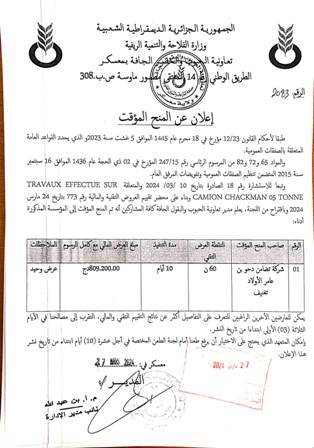 الجمهورية الجزائرية الديمقراطية الشعبية
وزارة الفلاحة والتنمية الريفية
تعاونية الحبوب والبقول الجافة بمعسكر
الطريق الوطني رقم 14 ماوسة ص.ب.308
الرقم 2093
إعلان عن المنح المؤقت
طبقا لأحكام القانون 12/23 مؤرخ في 18 محرم عام 1445 الموافق 5 غشت سنة 2023 الذي يحدد القواعد العامة
المتعلقة بالصفقات العمومية.
والمواد 65 و72 و82 من المرسوم الرئاسي رقم 247/15 المؤرخ في 02 ذي الحجة عام 1436 الموافق 16 سبتمبر
سنة 2015 المتضمن تنظيم الصفقات العمومية وتفويضات المرفق العام.
وتبعا للاستشارة رقم 18 الصادرة بتاريخ 10 /03/ 2024 والمتعلقة TRAVAUX EFFECTUE SUR
CAMION CHACKMAN 05 TONNE وبناء على محضر تقييم العروض التقنية والمالية رقم 773 بتاريخ 24
2024 وباقتراح من اللجنة، يعلم مدير تعاونية الحبوب والبقول الجافة كافة المشاركين أنه تم المنح المؤقت إلى المؤسسة المذكورة
الرقم صاحب المنح المؤقت التنقطة العرض التقني مدة التنفيذ مبلغ العرض المالي مع كامل الرسوم الملاحظات
01 شركة تضامن دحو بن عامر الأولاد تغنيف 60 ن 10 أيام 809.200.00دج عرض وحيد
يمكن للعارضين الآخرين الراغبين للتعرف على التفاصيل أكثر عن نتائج التقييم التقني والمالي، التقرب إلى مصالحنا في الأيام
الثلاثة (03) الأولى ابتداءا من تاريخ النشر.
بإمكان المتعهد الذي يحتج على الاختيار أن يرفع طعنا أمام لجنة الطعن المختصة في أجل عشرة (10) أيام ابتداءا من تاريخ نشر
هذا الإعلان.
معسكر في 27 MARS 2024
المدير
27 مارس 2024
م.ا. بن عبد الله
نائب مدير الإدارة